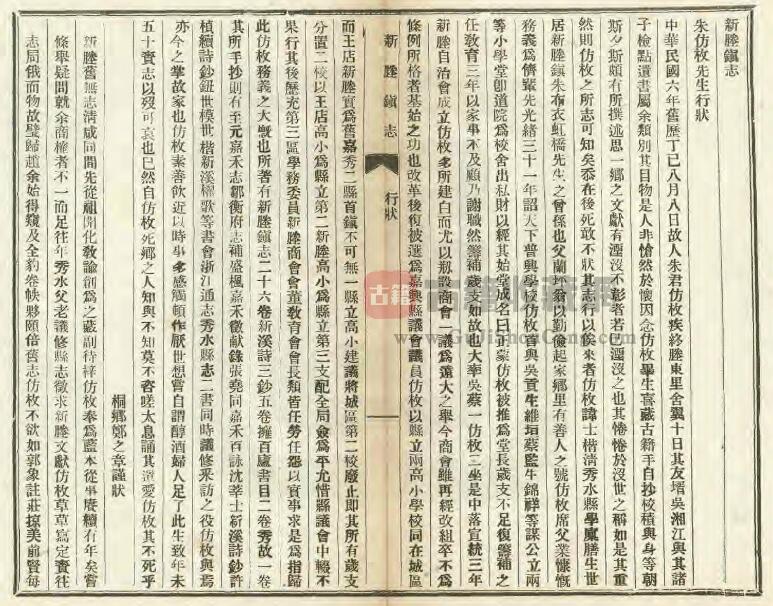 新塍鎮志
朱仿枚先生行狀
中華民國六年舊歷丁巳八月八日故人朱君仿枚疾終塍東里舍翼十日其友壻吳湘江與其諸
子檢點遺書屬余類別其目物是人非愴然於懷因念仿枚畢生喜藏古籍手自抄校積與身等朝
斯夕斯頗有所撰述思一鄉之文獻有湮沒不彰者若己湮沒之也其惓惓於沒世之稱如是其重
然則仿枚之所志可知矣忝在後死敢不狀其志行以俟來者仿枚諱士楷清秀水縣學廩膳生世
居新塍鎮朱布衣虹橋先生之曾孫也父蘭坪翁以勤儉起家鄉里有善人之號仿枚席父業慷慨
務義爲儕輩先光緒三十一年詔天下普興學校仿枚首與吳貢生維垣蔡監生錦祥等謀公立兩
等小學堂卽道院爲校舍出私財以經其始堂成名曰正蒙仿枚被推爲堂長歲支不足復籌補之
任敎育三年以家事不及顧乃謝職然籌補歲支如故也大率吳蔡一仿枚三坐是中落宣統三年
新塍自治會成立仿枚多所建白而尤以剏設商會一議爲遠大之舉今商會雖再經改組卒不爲
條例所格者基始之功也改革後復被選爲嘉興縣議會議員仿枚以縣立兩高小學校同在城區
新塍鎮志
行狀
而王店新塍實爲舊嘉秀二縣首鎮不可無一縣立高小建議將城區第二校廢止卽其所有歲支
分置二校以王店高小爲縣立第二新塍高小爲縣立第三支配全局僉爲平允惜縣議會中輟不
果行其後歷充第三區學務委員新塍商會會董敎育會會長類皆任勞任怨以實事求是爲指歸
此仿枚務義之大槪也所著有新塍鎮志二十六卷新溪詩三鈔五卷擁百廬書目二卷秀故一卷
其所手抄則有至元嘉禾志鄒衡府志補盛楓嘉禾徵獻錄張堯同嘉禾百詠沈莘士新溪詩鈔許
楨續詩鈔鈕世模世楷新溪櫂歌等書會浙江通志秀水縣志二書同時議修釆訪之役仿枚與焉
亦今之掌故家也仿枚素善飮近以時事多感觸頓作厭世想嘗自謂醇酒婦人足了此生致年未
五十賫志以歿可哀也已然自仿枚死鄉之人知與不知莫不咨嗟太息誦其遺愛仿枚其不死乎
桐鄉鄭之章謹狀
新塍舊無志清咸同間先從祖開化敎諭創爲之蕆副待梓仿枚奉爲藍本從事賡續有年矣嘗
條舉疑問就余商榷者不一而足往年秀水父老議修縣志徵求新塍文獻仿枚草草寫定賫往
志局俄而物故璧歸趙余始得窺及全豹卷帙夥頤倍舊志仿枚不欲如郭象註莊掠美前賢每